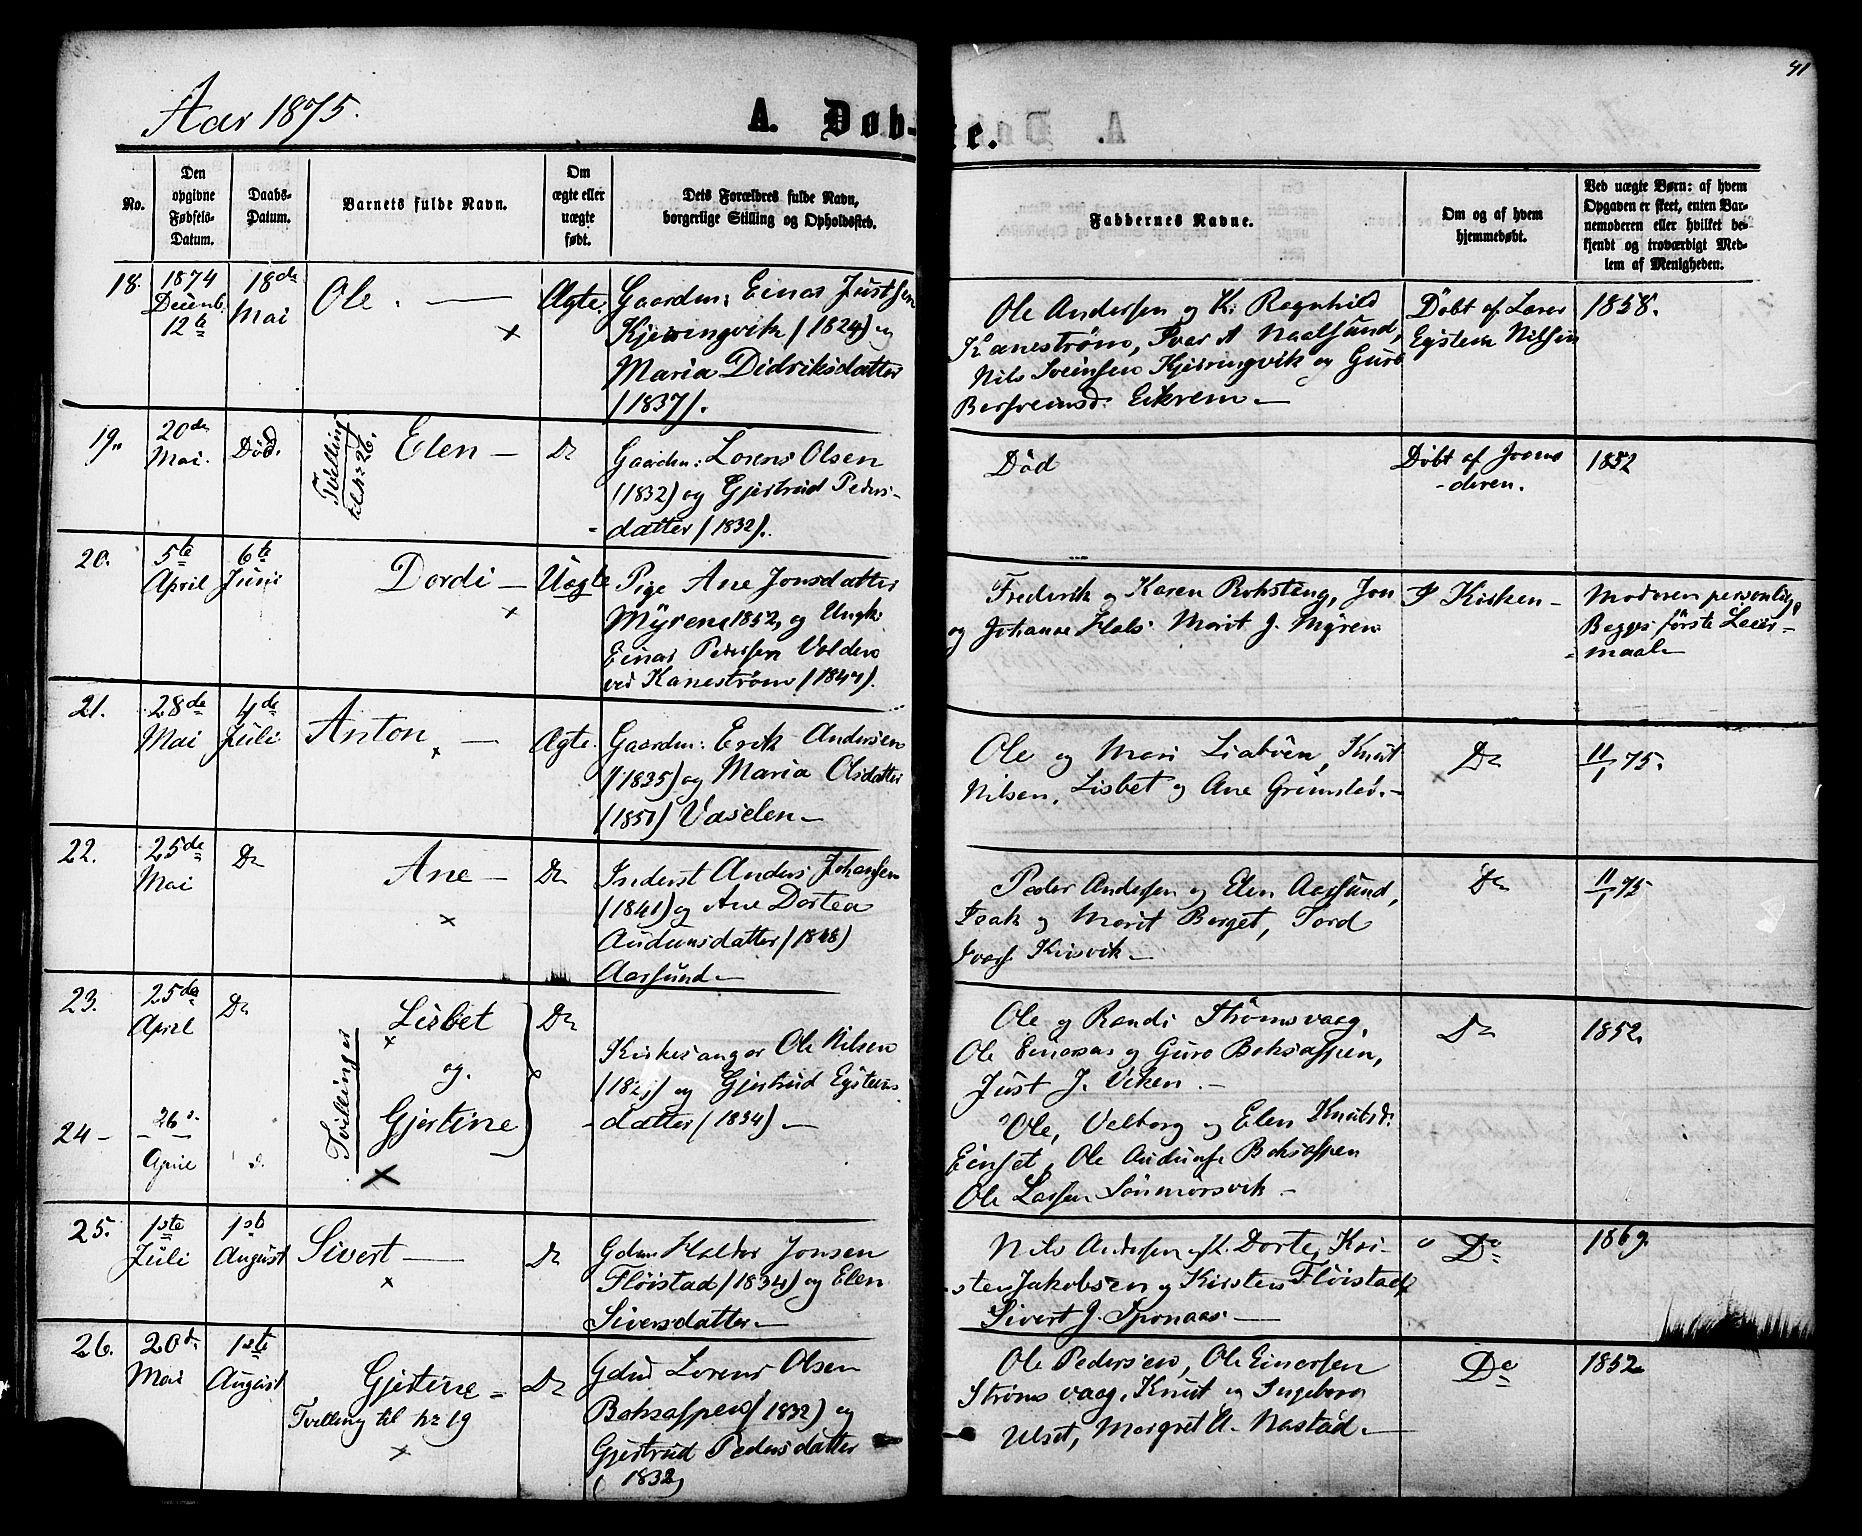 Aar 1875.
A. Døb-
te.
41
No.
Den
opgivne
Fødsels-
Datum.
Daabs-
Datum.
Barnets fulde Navn.
Om
ægte eller
uægte
født.
Dets Forældres fulde Navn,
borgerlige Stilling og Opholdssted.
Faddernes Navne.
Om og af hvem
hjemmedøbt.
Ved uægte Børn: af hvem
Opgaven er skeet, enten Bar-
nemoderen eller hvilket be-
kjendt og troværdigt Med-
lem af Menigheden.
18.
1874
Decemb.
12te
18de
Mai
Ole. —
Ægte.
Gaardm: Einar Justsen
Kjørringvik (1824) og
Maria Didriksdatter
(1837).
Ole Andersen og K. Ragnhild
Kanestrøm, Ivar A Naalsund,
Nils Sveinsen Kjørringvik og Guro
Eikrem —
Døbt af Lærer
Eystein Nilsen
1858.
19.
20de
Mai.
Død.
Tvilling
til No 26.
Elen —
Do
Gaardm: Lorens Olsen
(1832) og Gjertrud Peders-
datter (1832).
Død
Døbt af Jorm
-deren.
1852
20.
5te
April
6te
Juni
Dordi —
Uægte
Pige Ane Jonsdatter
Myren 1852, og Ungk:
Einar Pedersen Volden
ved Kanestrøm (1847).
Frederik og Karen Rokstang, Jon
og Johanne Hals Marit J. Myren
I Kirken —
Moderen personlig,
Begges første Leier-
maal —
21.
28de
Mai
4de
Juli
Anton —
Ægte.
Gaardm: Erik Andersen
(1835) og Maria Olsdatter
(1851) Vaselen —
Ole og Mari Liabøen, Knut
Nilsen, Lisbet og Ane Grimstad. —
Do
11/1 75.
22.
25de
Mai
Do
Ane —
Do
Inderst Anders Johansen
(1841) og Ane Dortea
Audunsdatter (1848)
Aarsund —
Peder Andersen og Elen Aarsund,
Isak og Marit Berget, Tord
Ivars Kirsvik —
Do
11/1 75
23.
25de
April
Do
Tvillinger
Lisbet
og.
Do
Kirkesanger Ole Nilsen
og Gjertrud Eysteins
datter (1834) —
Ole og Randi Strømsvaag,
Ole Einarsen og Guro Boksaspen,
Just J. Viken. —
Do
1852.
24 —
26.
April
d.
Gjertine
Ole, Velborg og Elen Knutsd:
Einset, Ole Audunsen Boksaspen
Ole Larsen Sønmørsvik —
25.
1ste
Juli
1ste
August
Sivert —
Do
Gdm Haldor Jonsen
Fløistad (1834) og Elen
Siversdatter —
Nils Andersen og H. Dorte, Kri-
sten Jakobsen og Kirsten Fløistad
Sivert J. Spornaas —
Do
1869.
26.
20de
Mai
1ste
August
Gjertine —
Tvilling til No 19
Do
Gdm Lorens Olsen
Boksaspen (1832) og
Gjertrud Pedersdatter
(1832)
Ole Pedersen, Ole Einarsen
Strømsvaag, Knut og Ingeborg
Ulset, Margret A. Nastad. —
Do
1852